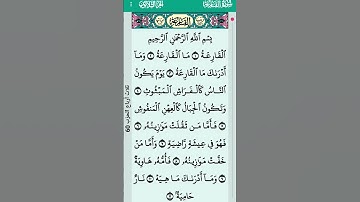 سُورَةُ القَارِعَةِ
الجُزْءُ الثَّلَاثُونَ
القَارِعَة
بِسْمِ ٱللَّهِ ٱلرَّحْمَٰنِ ٱلرَّحِيمِ
ٱلْقَارِعَةُ ۝١ مَا ٱلْقَارِعَةُ ۝٢ وَمَآ
أَدْرَىٰكَ مَا ٱلْقَارِعَةُ ۝٣ يَوْمَ يَكُونُ
ٱلنَّاسُ كَٱلْفَرَاشِ ٱلْمَبْثُوثِ ۝٤
وَتَكُونُ ٱلْجِبَالُ كَٱلْعِهْنِ ٱلْمَنفُوشِ
۝٥ فَأَمَّا مَن ثَقُلَتْ مَوَٰزِينُهُۥ ۝٦
فَهُوَ فِى عِيشَةٍ رَّاضِيَةٍ ۝٧ وَأَمَّا مَنْ
خَفَّتْ مَوَٰزِينُهُۥ ۝٨ فَأُمُّهُۥ هَاوِيَةٌ
۝٩ وَمَآ أَدْرَىٰكَ مَا هِيَهْ ۝١٠ نَارٌ
حَامِيَةٌۢ ۝١١
ثلاث أرباع الحزب 60